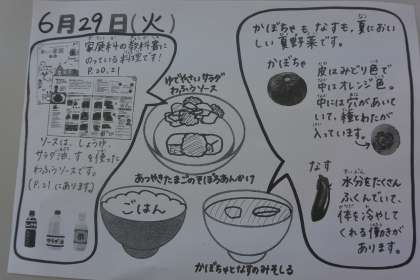 6月29日(火)
家庭科の教科書に
のっている料理です!
P.20.21
ソースは、しょうゆ、
サラダ油、すを使った
わふうソースです。
(P.21にあります。)
ゆでやさいサラダ
わふうソース
あつやきたまごのそぼろあんかけ
ごはん
かぼちゃとなすのみそしる
かぼちゃも、なすも、夏におい
しい夏野菜です。
かぼちゃ
皮はみどり色で
中はオレンジ色。
中には穴があいて
いて、種とわたが
入っています。
なす
水分をたくさん
ふくんでいて、
体を冷やして
くれる働きが
あります。